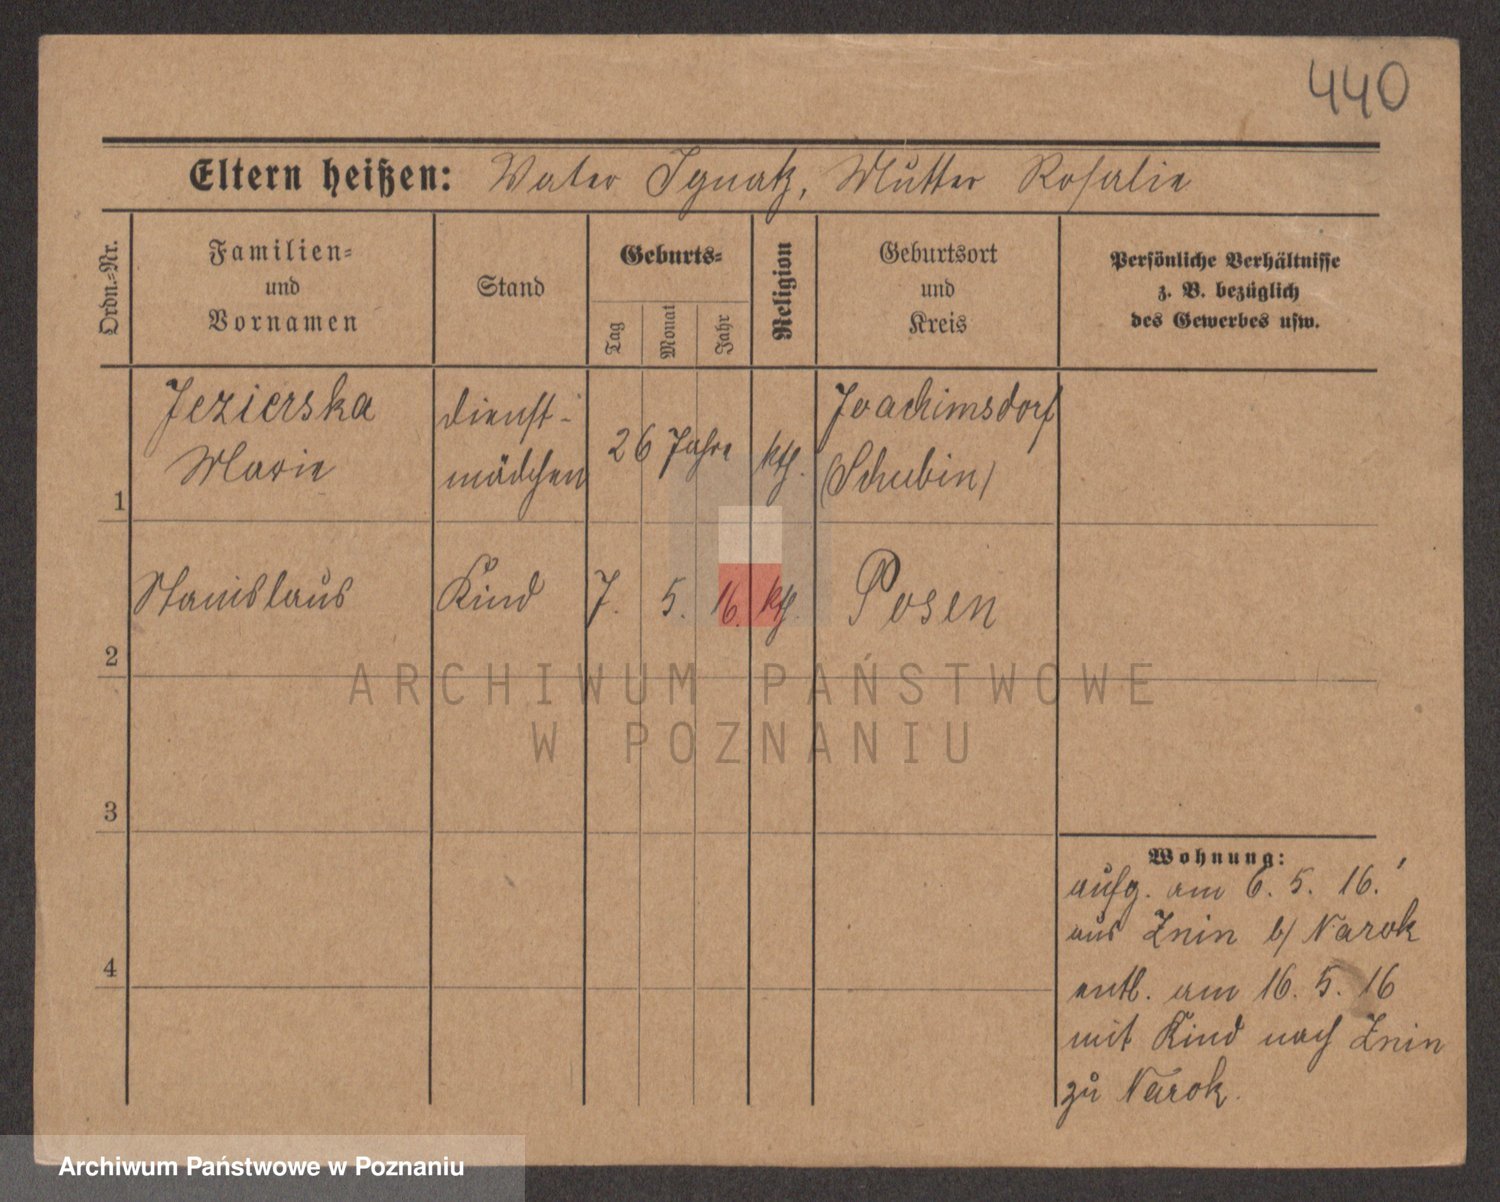 440
Eltern heißen: Vater Ignatz, Mutter Rosalie
Ordn.-Nr.
Familien-
und
Vornamen
Stand
Geburts-
Tag
Monat
Jahr
Religion
Geburtsort
und
Kreis
Persönliche Verhältnisse
z. B. bezüglich
des Gewerbes usw.
1
Jezierska
Marie
Dienst-
mädchen
26 Jahre
kth.
Joachimsdorf
(Schubin)
2
Stanislaus
Kind
7. 5. 16.
kth.
Posen
3
4
Wohnung:
aufg. am 6. 5. 16.
aus Znin b/ Narok
entl. am 16. 5. 16
mit Kind nach Znin
zu Narok.
ARCHIWUM PAŃSTWOWE
W POZNANIU
Archiwum Państwowe w Poznaniu